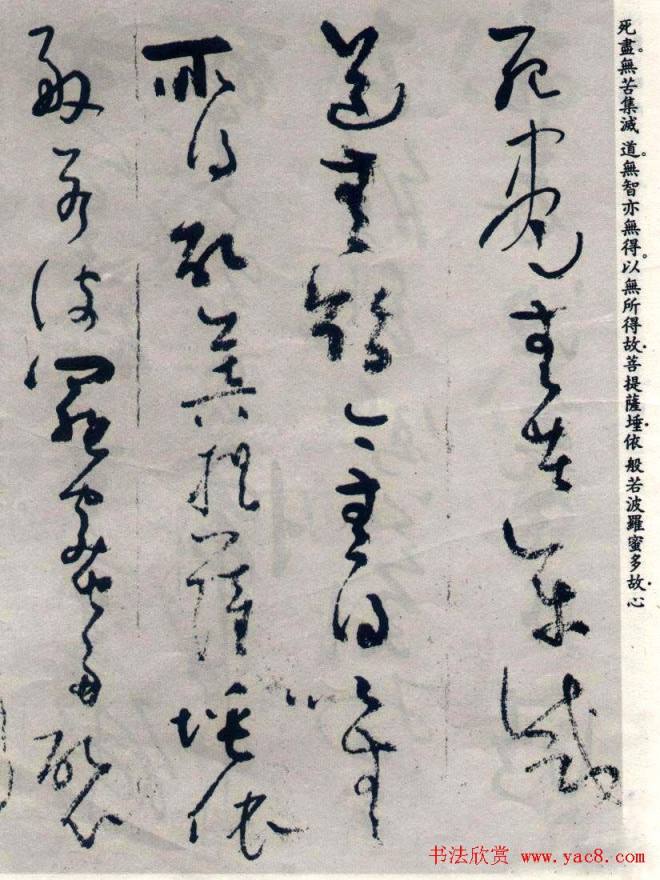 死盡。無苦集滅 道。無智亦無得。以無所得故·菩提薩埵·依 般若波羅蜜多故·心
死盡無苦集滅
道無智亦無得以無
所得故菩提薩埵依
般若波羅蜜多故心
书法欣赏 www.yac8.com